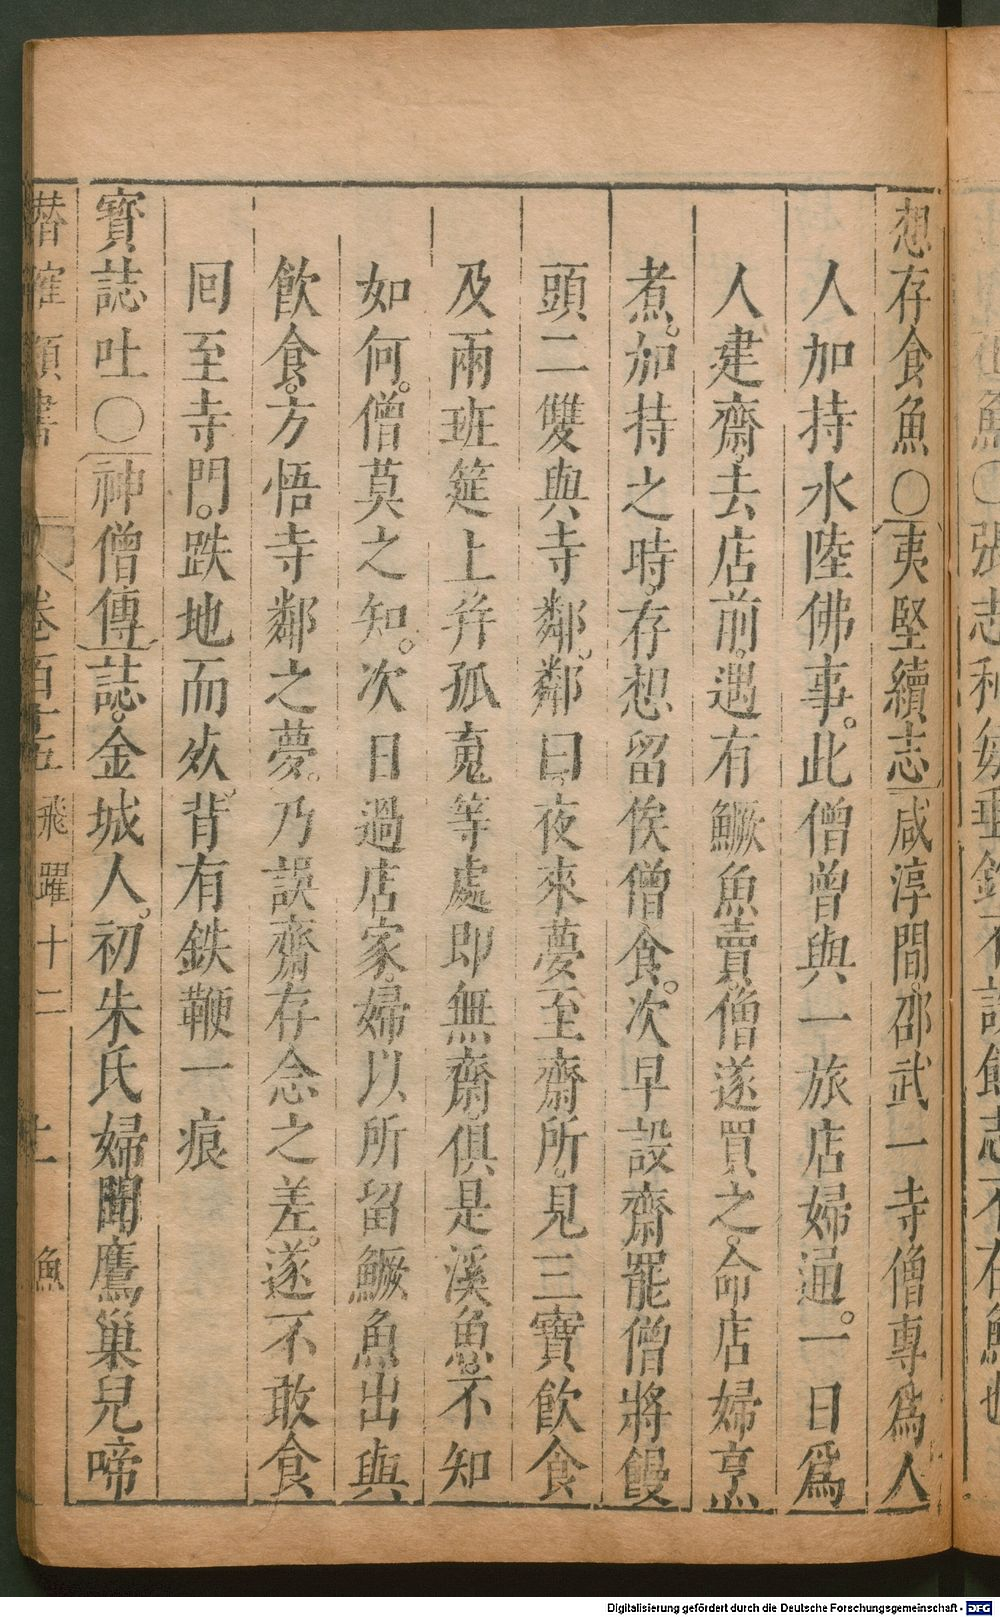 想存食魚〇夷堅續志咸淳間。邵武一寺僧專爲人
人加持水陸佛事。此僧曾與一旅店婦通。一日爲
人建齋。去店前。遇有鱖魚賣。僧遂買之。命店婦烹
煮。加持之時。存想留俟僧食。次早設齋罷。僧將饅
頭二雙與寺鄰。鄰曰。夜來夢至齋所。見三寶飲食
及兩班筵上幷孤䰟等處即無齋。俱是溪魚。不知
如何。僧莫之知。次日過店家。婦以所留鱖魚出與
飲食。方悟寺鄰之夢。乃誤齋存念之差。遂不敢食
囘至寺門。跌地而歿。背有鉄鞭一痕
寶誌吐〇神僧傳誌。金城人。初朱氏婦聞鷹巢兒啼
潛確類書 卷百十五 飛躍十二 魚
Digitalisierung gefördert durch die Deutsche Forschungsgemeinschaft - DFG